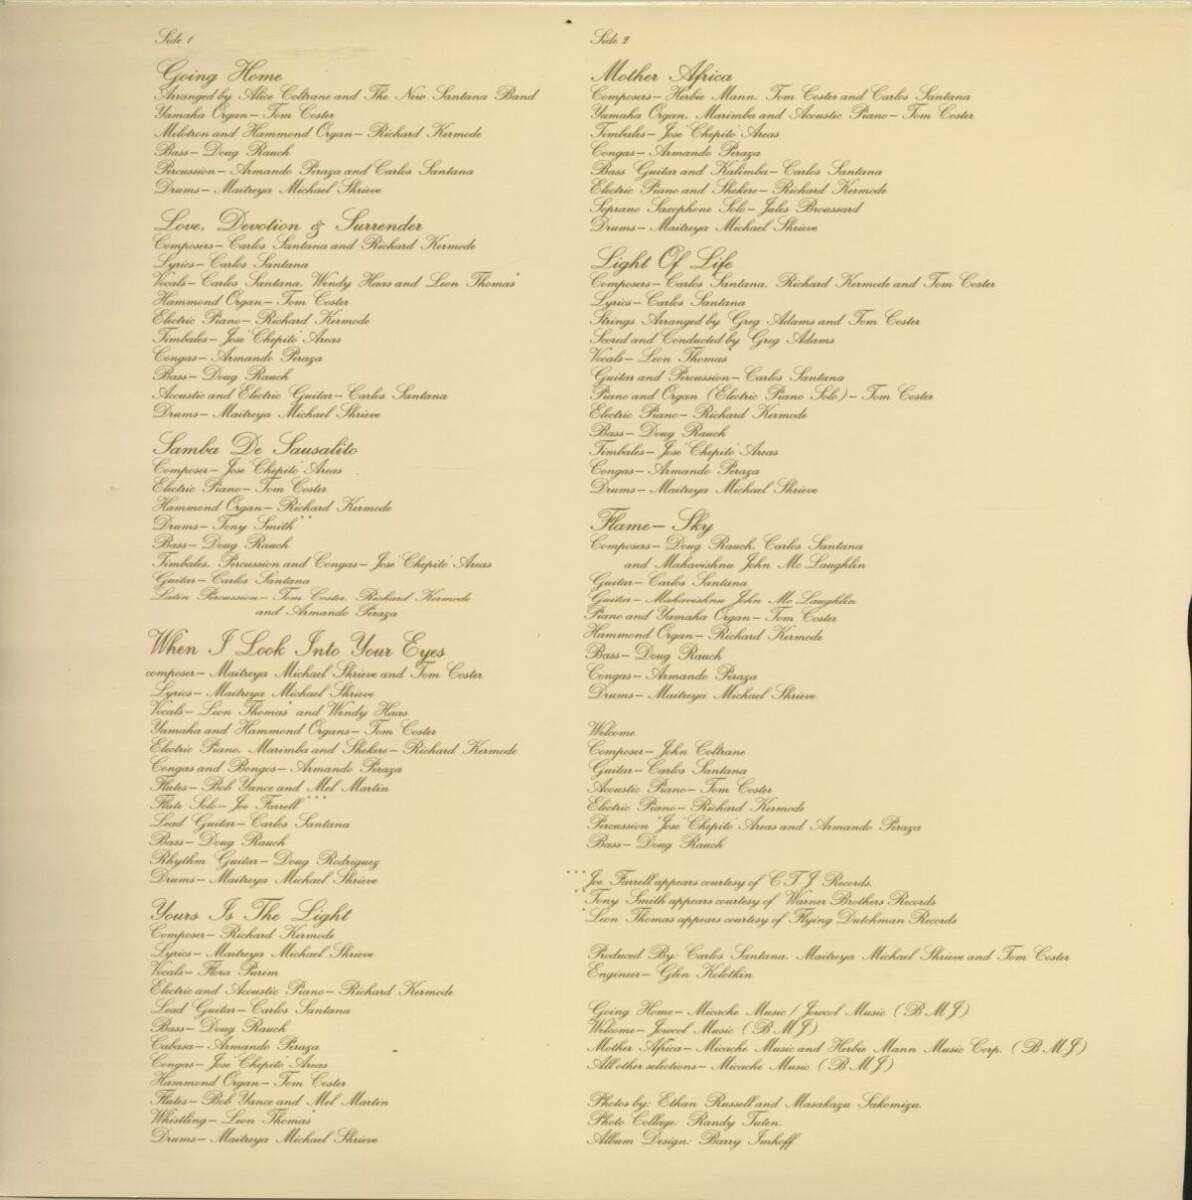 Side 1
Going Home
Arranged by Alice Coltrane and The New Santana Band
Yamaha Organ— Tom Coster
Melotron and Hammond Organ— Richard Kermode
Bass— Doug Rauch
Percussion— Armando Peraza and Carlos Santana
Drums— Maitreya Michael Shrieve
Love, Devotion & Surrender
Composers— Carlos Santana and Richard Kermode
Lyrics— Carlos Santana
Vocals— Carlos Santana, Wendy Haas and Leon Thomas*
Hammond Organ— Tom Coster
Electric Piano— Richard Kermode
Timbales— Jose 'Chepito' Areas
Congas— Armando Peraza
Bass— Doug Rauch
Acoustic and Electric Guitar— Carlos Santana
Drums— Maitreya Michael Shrieve
Samba De Sausalito
Composer— Jose 'Chepito' Areas
Electric Piano— Tom Coster
Hammond Organ— Richard Kermode
Drums— Tony Smith**
Bass— Doug Rauch
Timbales, Percussion and Congas— Jose 'Chepito' Areas
Guitar— Carlos Santana
Latin Percussion— Tom Coster, Richard Kermode
and Armando Peraza
When I Look Into Your Eyes
composer— Maitreya Michael Shrieve and Tom Coster
Lyrics— Maitreya Michael Shrieve
Vocals— Leon Thomas* and Wendy Haas
Yamaha and Hammond Organs— Tom Coster
Electric Piano, Marimba and Shekere— Richard Kermode
Congas and Bongos— Armando Peraza
Flutes— Bob Yance and Mel Martin
Flute Solo— Joe Farrell***
Lead Guitar— Carlos Santana
Bass— Doug Rauch
Rhythm Guitar— Doug Rodriguez
Drums— Maitreya Michael Shrieve
Yours Is The Light
Composer— Richard Kermode
Lyrics— Maitreya Michael Shrieve
Vocals— Flora Purim
Electric and Acoustic Piano— Richard Kermode
Lead Guitar— Carlos Santana
Bass— Doug Rauch
Cabasa— Armando Peraza
Congas— Jose 'Chepito' Areas
Hammond Organ— Tom Coster
Flutes— Bob Yance and Mel Martin
Whistling— Leon Thomas*
Drums— Maitreya Michael Shrieve
Side 2
Mother Africa
Composers— Herbie Mann, Tom Coster and Carlos Santana
Yamaha Organ, Marimba and Acoustic Piano— Tom Coster
Timbales— Jose 'Chepito' Areas
Congas— Armando Peraza
Bass Guitar and Kalimba— Carlos Santana
Electric Piano and Shekere— Richard Kermode
Soprano Saxophone Solo— Jules Broussard
Drums— Maitreya Michael Shrieve
Light Of Life
Composers— Carlos Santana, Richard Kermode and Tom Coster
Lyrics— Carlos Santana
Strings Arranged by Greg Adams and Tom Coster
Scored and Conducted by Greg Adams
Vocals— Leon Thomas*
Guitar and Percussion— Carlos Santana
Piano and Organ (Electric Piano Solo)— Tom Coster
Electric Piano— Richard Kermode
Bass— Doug Rauch
Timbales— Jose 'Chepito' Areas
Congas— Armando Peraza
Drums— Maitreya Michael Shrieve
Flame— Sky
Composers— Doug Rauch, Carlos Santana
and Mahavishnu John Mc Laughlin
Guitar— Carlos Santana
Guitar— Mahavishnu John Mc Laughlin
Piano and Yamaha Organ— Tom Coster
Hammond Organ— Richard Kermode
Bass— Doug Rauch
Congas— Armando Peraza
Drums— Maitreya Michael Shrieve
Welcome
Composer— John Coltrane
Guitar— Carlos Santana
Acoustic Piano— Tom Coster
Electric Piano— Richard Kermode
Percussion 'Jose 'Chepito' Areas and Armando Peraza
Bass— Doug Rauch
***Joe Farrell appears courtesy of C T J Records.
**Tony Smith appears courtesy of Warner Brothers Records
*Leon Thomas appears courtesy of Flying Dutchman Records
Produced By: Carlos Santana, Maitreya Michael Shrieve and Tom Coster
Engineer— Glen Kolotkin
Going Home— Micache Music / Jowcol Music (B M J)
Welcome— Jowcol Music (B M J)
Mother Africa— Micache Music and Herbie Mann Music Corp. (B M J)
All other selections— Micache Music (B M J)
Photos by: Ethan Russell and Masakazu Sakomizu.
Photo Collage: Randy Tuten.
Album Design: Barry Imhoff